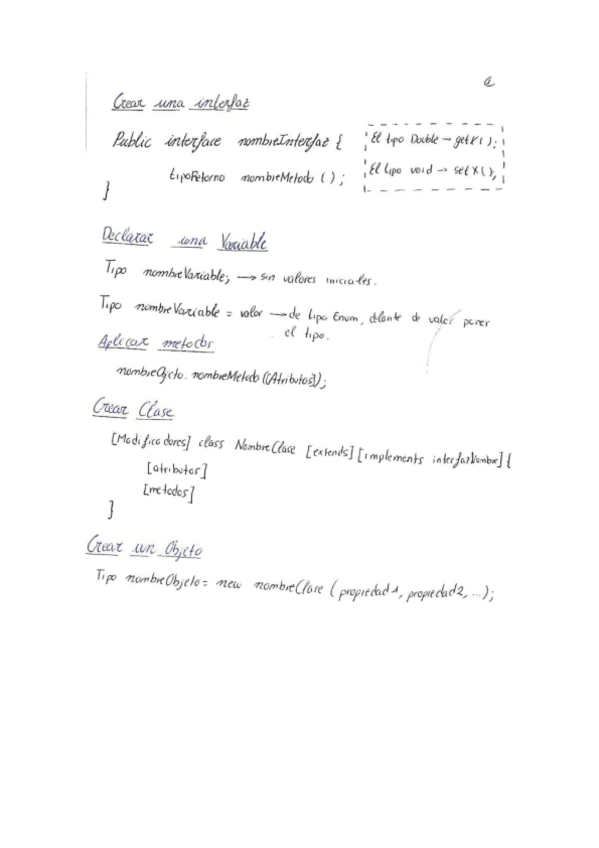 Crear una interfaz
Public interface nombreInterfaz {
El tipo Double → getX();
tipoRetorno nombreMetodo ();
El tipo void → setX();
}
Declarar una Variable
Tipo nombreVariable; → sin valores iniciales.
Tipo nombreVariable = valor → de tipo Enum, delante de valor poner
el tipo.
Aplicar metodos
nombreOjeto.nombreMetodo([Atributos]);
Crear Clase
[Modificadores] class NombreClase [extends] [implements interfazNombre] {
[atributos]
[metodos]
}
Crear un Objeto
Tipo nombreObjeto = new nombreClase (propiedad1, propiedad2, ...);